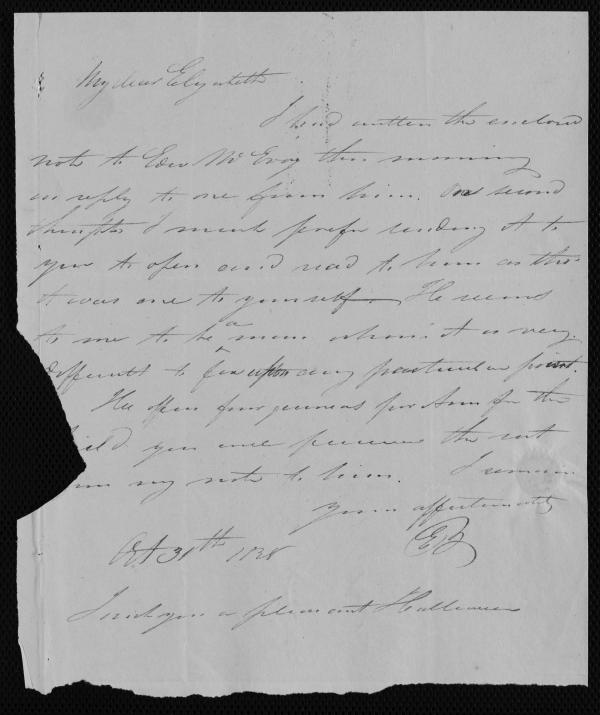 My dear Elizabeth
I had written the enclosed
note to Edw McEvoy this morning
in reply to one from him. On second
thoughts I much prefer sending it to
you to open and read to him as tho'
it was one to yourself. He seems
to me to be a man whom it is very
difficult to fix upon any particular point.
He offers four guineas per Ann for the
ield you will perceive the rest
my note to him. I remain
Yours affectionately
EB
Oct 31th 1838
I wish you a pleasant Halloween